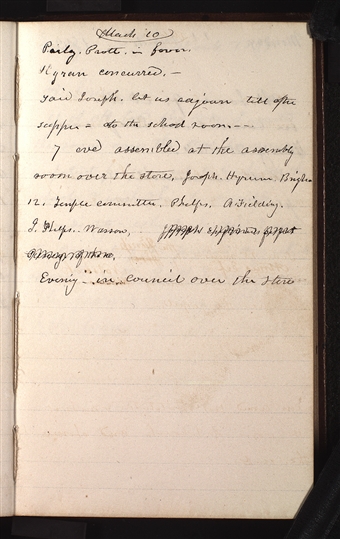 March 10
Parly. Pratt. in favor.
Hyrum concurred.—
said Joseph. let us adjourn till after
supper = to the school room.--
7 eve assembled at the assembly
room over the store, Joseph. Hyrum. Brigham
12. Temple committee. Phelps. A Fielding.
J. Phelps. Wasson,
Evenig in council over the store